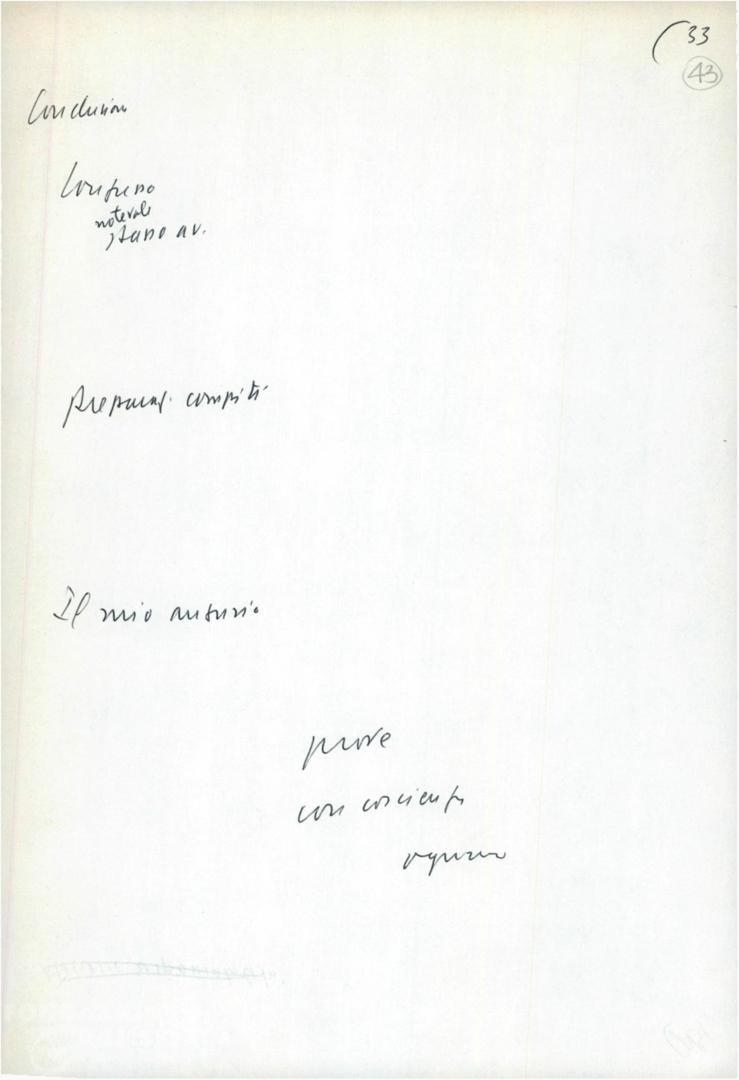 (33
43
Conclusioni
Congresso
notevole
passo av.
preparaz. compiti
Il mio augurio
prove
con coscienza
ognuno